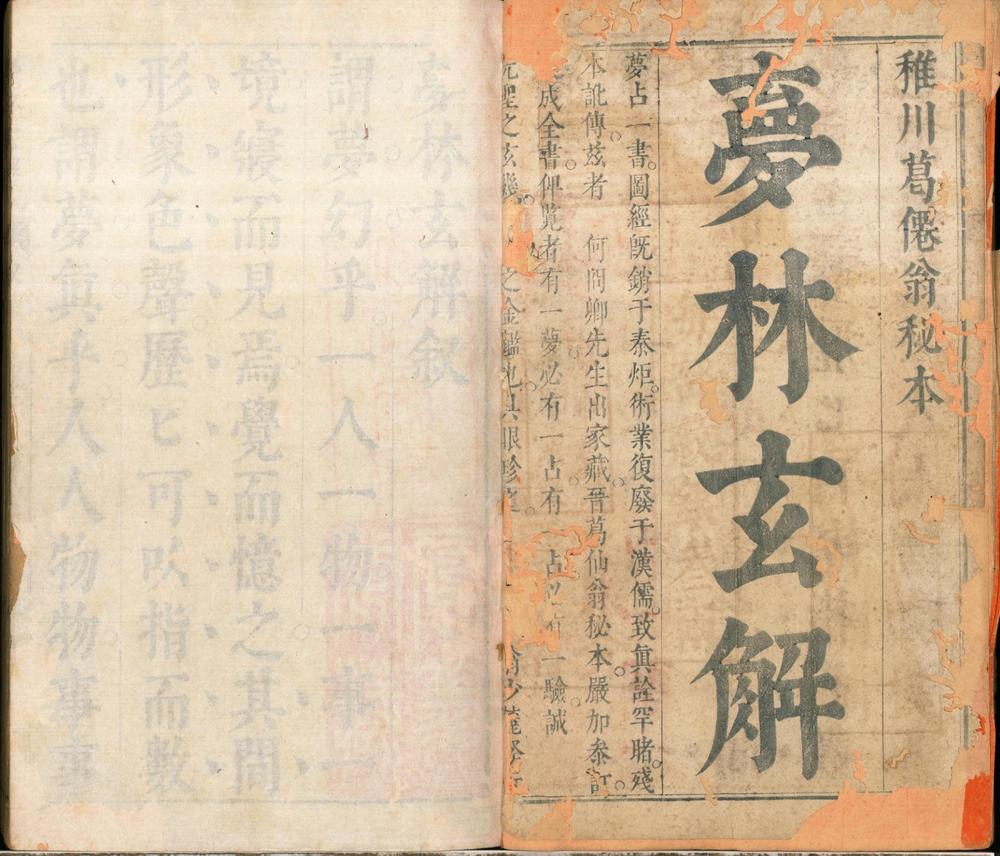 稚川葛僊翁秘本
夢林玄解
夢占一書圖經旣銷于秦炬術業復廢于漢儒致眞詮罕睹殘
本訛傳茲者　何問卿先生出家藏晉葛仙翁秘本嚴加參訂
成全書俾覽者有一夢必有一占有一占必有一驗誠
聖之玄幾　之金鑑也具眼珍之
夢林玄解敘
謂夢幻乎一人一物一事一
境寢而見焉覺而憶之其間
形象色聲歷匕可以指而數
也謂夢眞乎人人物物事事